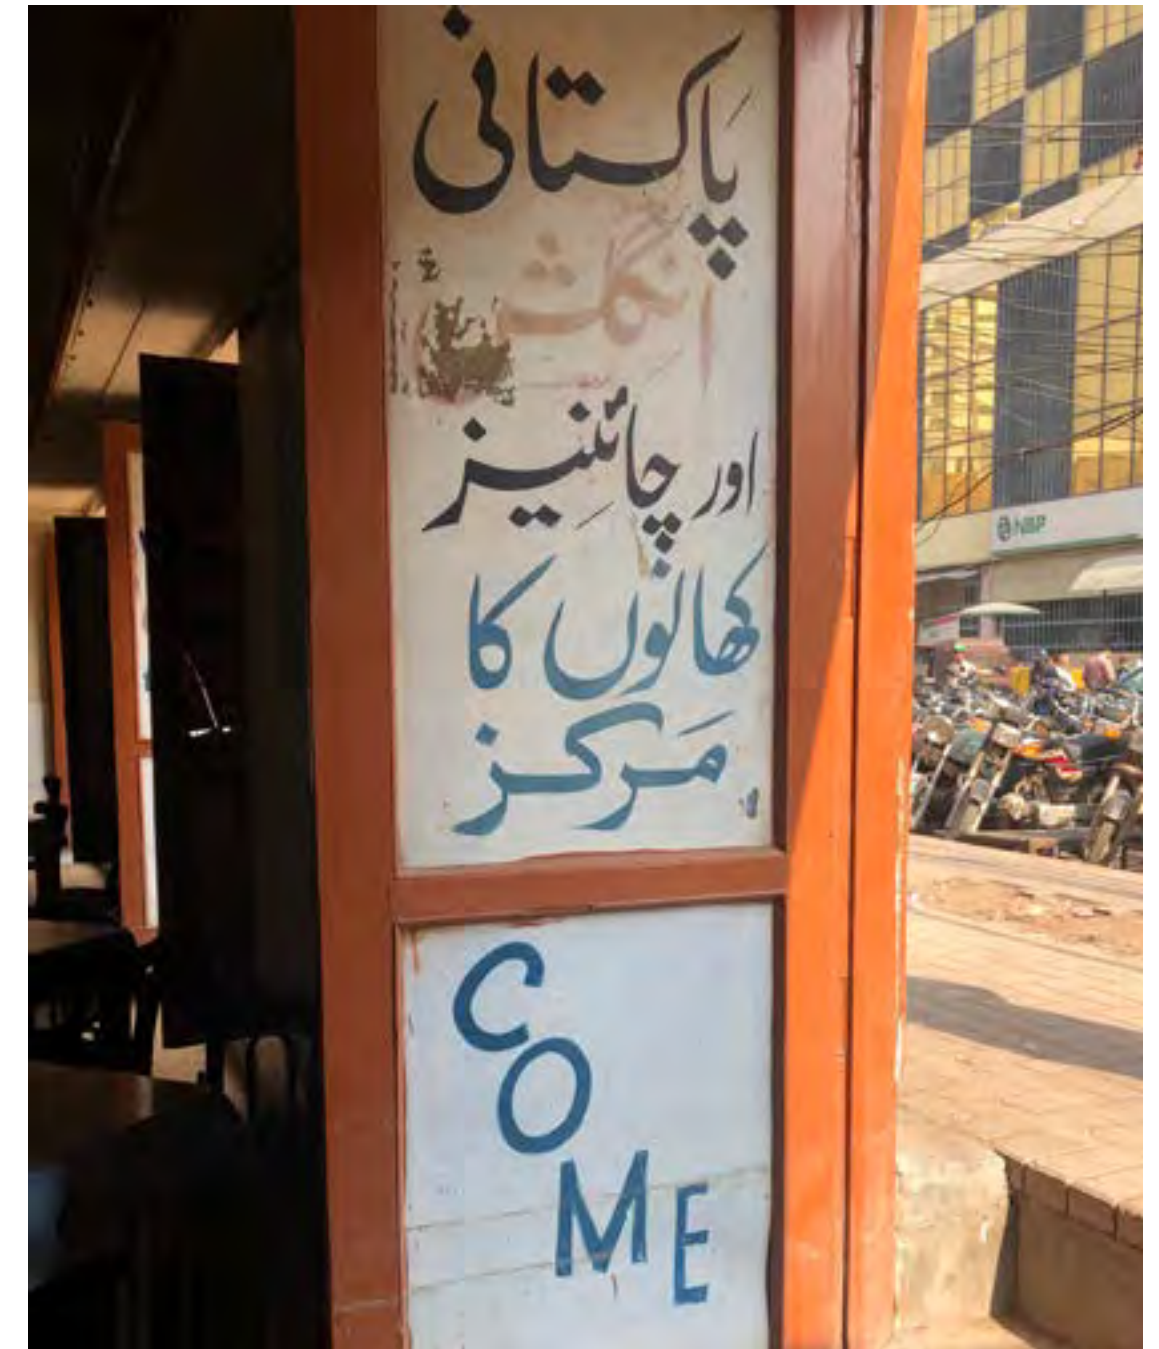 پاکستانی
اور چائنیز
کھانوں کا
مرکز
COME
NBP